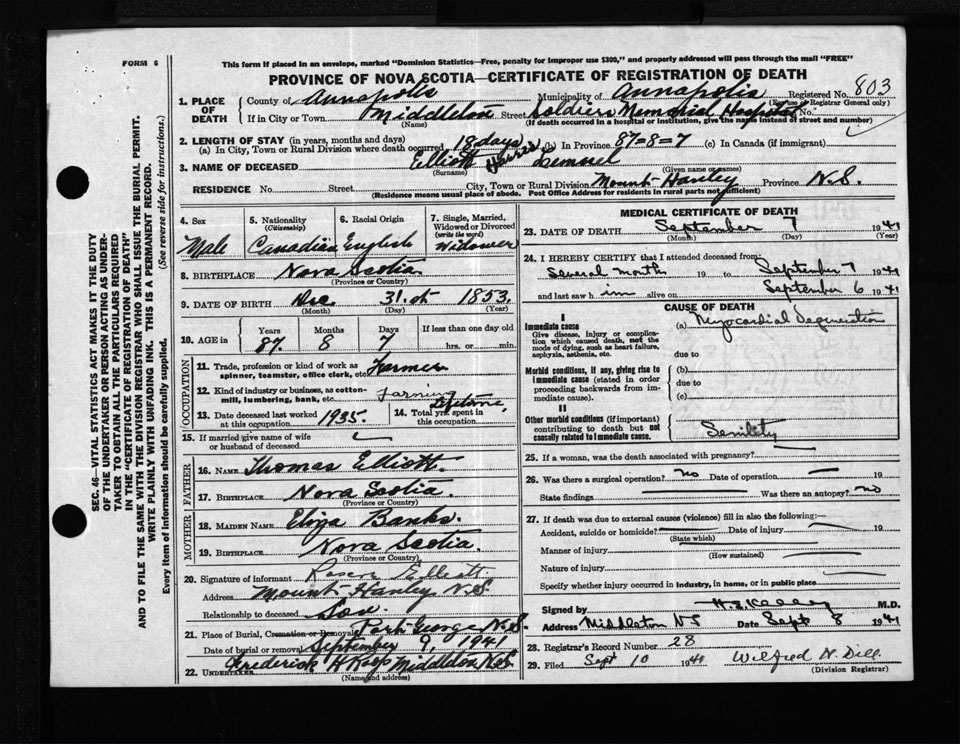 FORM 6
This form if placed in an envelope, marked "Dominion Statistics—Free, penalty for improper use $300," and properly addressed will pass through the mail "FREE"
PROVINCE OF NOVA SCOTIA—CERTIFICATE OF REGISTRATION OF DEATH
SEC. 46—VITAL STATISTICS ACT MAKES IT THE DUTY
OF THE UNDERTAKER OR PERSON ACTING AS UNDER-
TAKER TO OBTAIN ALL THE PARTICULARS REQUIRED
IN THE "CERTIFICATE OF REGISTRATION OF DEATH"
AND TO FILE THE SAME WITH THE DIVISION REGISTRAR WHO SHALL ISSUE THE BURIAL PERMIT.
WRITE PLAINLY WITH UNFADING INK. THIS IS A PERMANENT RECORD.
Every item of information should be carefully supplied. (See reverse side for instructions.)
1. PLACE OF DEATH County of Annapolis Municipality of Annapolis Registered No. 803
(For use of Registrar General only)
If in City or Town Middleton Street Soldiers Memorial Hospital No.
(Name) (If death occurred in a hospital or institution, give the name instead of street and number)
2. LENGTH OF STAY (in years, months and days)
(a) In City, Town or Rural Division where death occurred 18 days (b) In Province 87=8=7 (c) In Canada (if immigrant)
3. NAME OF DECEASED Elliott Harris Lemuel
(Surname) (Given name or names)
RESIDENCE No. Street City, Town or Rural Division Mount Hanley Province N.S.
(Residence means usual place of abode. Post Office Address for residents in rural parts not sufficient)
4. Sex Male
5. Nationality (Citizenship) Canadian
6. Racial Origin English
7. Single, Married, Widowed or Divorced (write the word) Widower
8. BIRTHPLACE Nova Scotia
(Province or Country)
9. DATE OF BIRTH Dec 31st 1853.
(Month) (Day) (Year)
10. AGE in Years 87 Months 8 Days 7 If less than one day old hrs. or min.
OCCUPATION
11. Trade, profession or kind of work as spinner, teamster, office clerk, etc. Farmer
12. Kind of industry or business, as cotton-mill, lumbering, bank, etc. Farming
13. Date deceased last worked at this occupation 1935.
14. Total yrs. spent in this occupation Lifetime,
15. If married give name of wife or husband of deceased
FATHER
16. NAME Thomas Elliott.
17. BIRTHPLACE Nova Scotia.
(Province or Country)
MOTHER
18. MAIDEN NAME Eliza Banks.
19. BIRTHPLACE Nova Scotia.
(Province or Country)
20. Signature of informant Elliott
Address Mount Hanley N.S.
Relationship to deceased Son
21. Place of Burial, Cremation or Removal Port George N.S.
Date of burial or removal September 9, 1941
22. UNDERTAKER Frederick H Middleton N.S.
(Name and address)
MEDICAL CERTIFICATE OF DEATH
23. DATE OF DEATH September 7 1941
(Month) (Day) (Year)
24. I HEREBY CERTIFY that I attended deceased from:
Several month 19 to September 7 1941
and last saw him alive on September 6 1941
CAUSE OF DEATH
I
Immediate cause (a) Myocardial Degeneration
Give disease, injury or complication which caused death, not the mode of dying, such as heart failure, asphyxia, asthenia, etc.
due to
Morbid conditions, if any, giving rise to immediate cause (stated in order proceeding backwards from immediate cause). (b)
due to
(c)
II
Other morbid conditions (if important) contributing to death but not causally related to immediate cause. Senility
25. If a woman, was the death associated with pregnancy?
26. Was there a surgical operation? no Date of operation 19
State findings Was there an autopsy? no
27. If death was due to external causes (violence) fill in also the following:—
Accident, suicide or homicide? Date of injury 19
(State which)
Manner of injury
(How sustained)
Nature of injury
Specify whether injury occurred in industry, in home, or in public place
Signed by M.D.
Address Middleton NS Date Sept 8 1941
28. Registrar's Record Number 28
29. Filed Sept 10 1941 Wilfred N. Dill.
(Division Registrar)